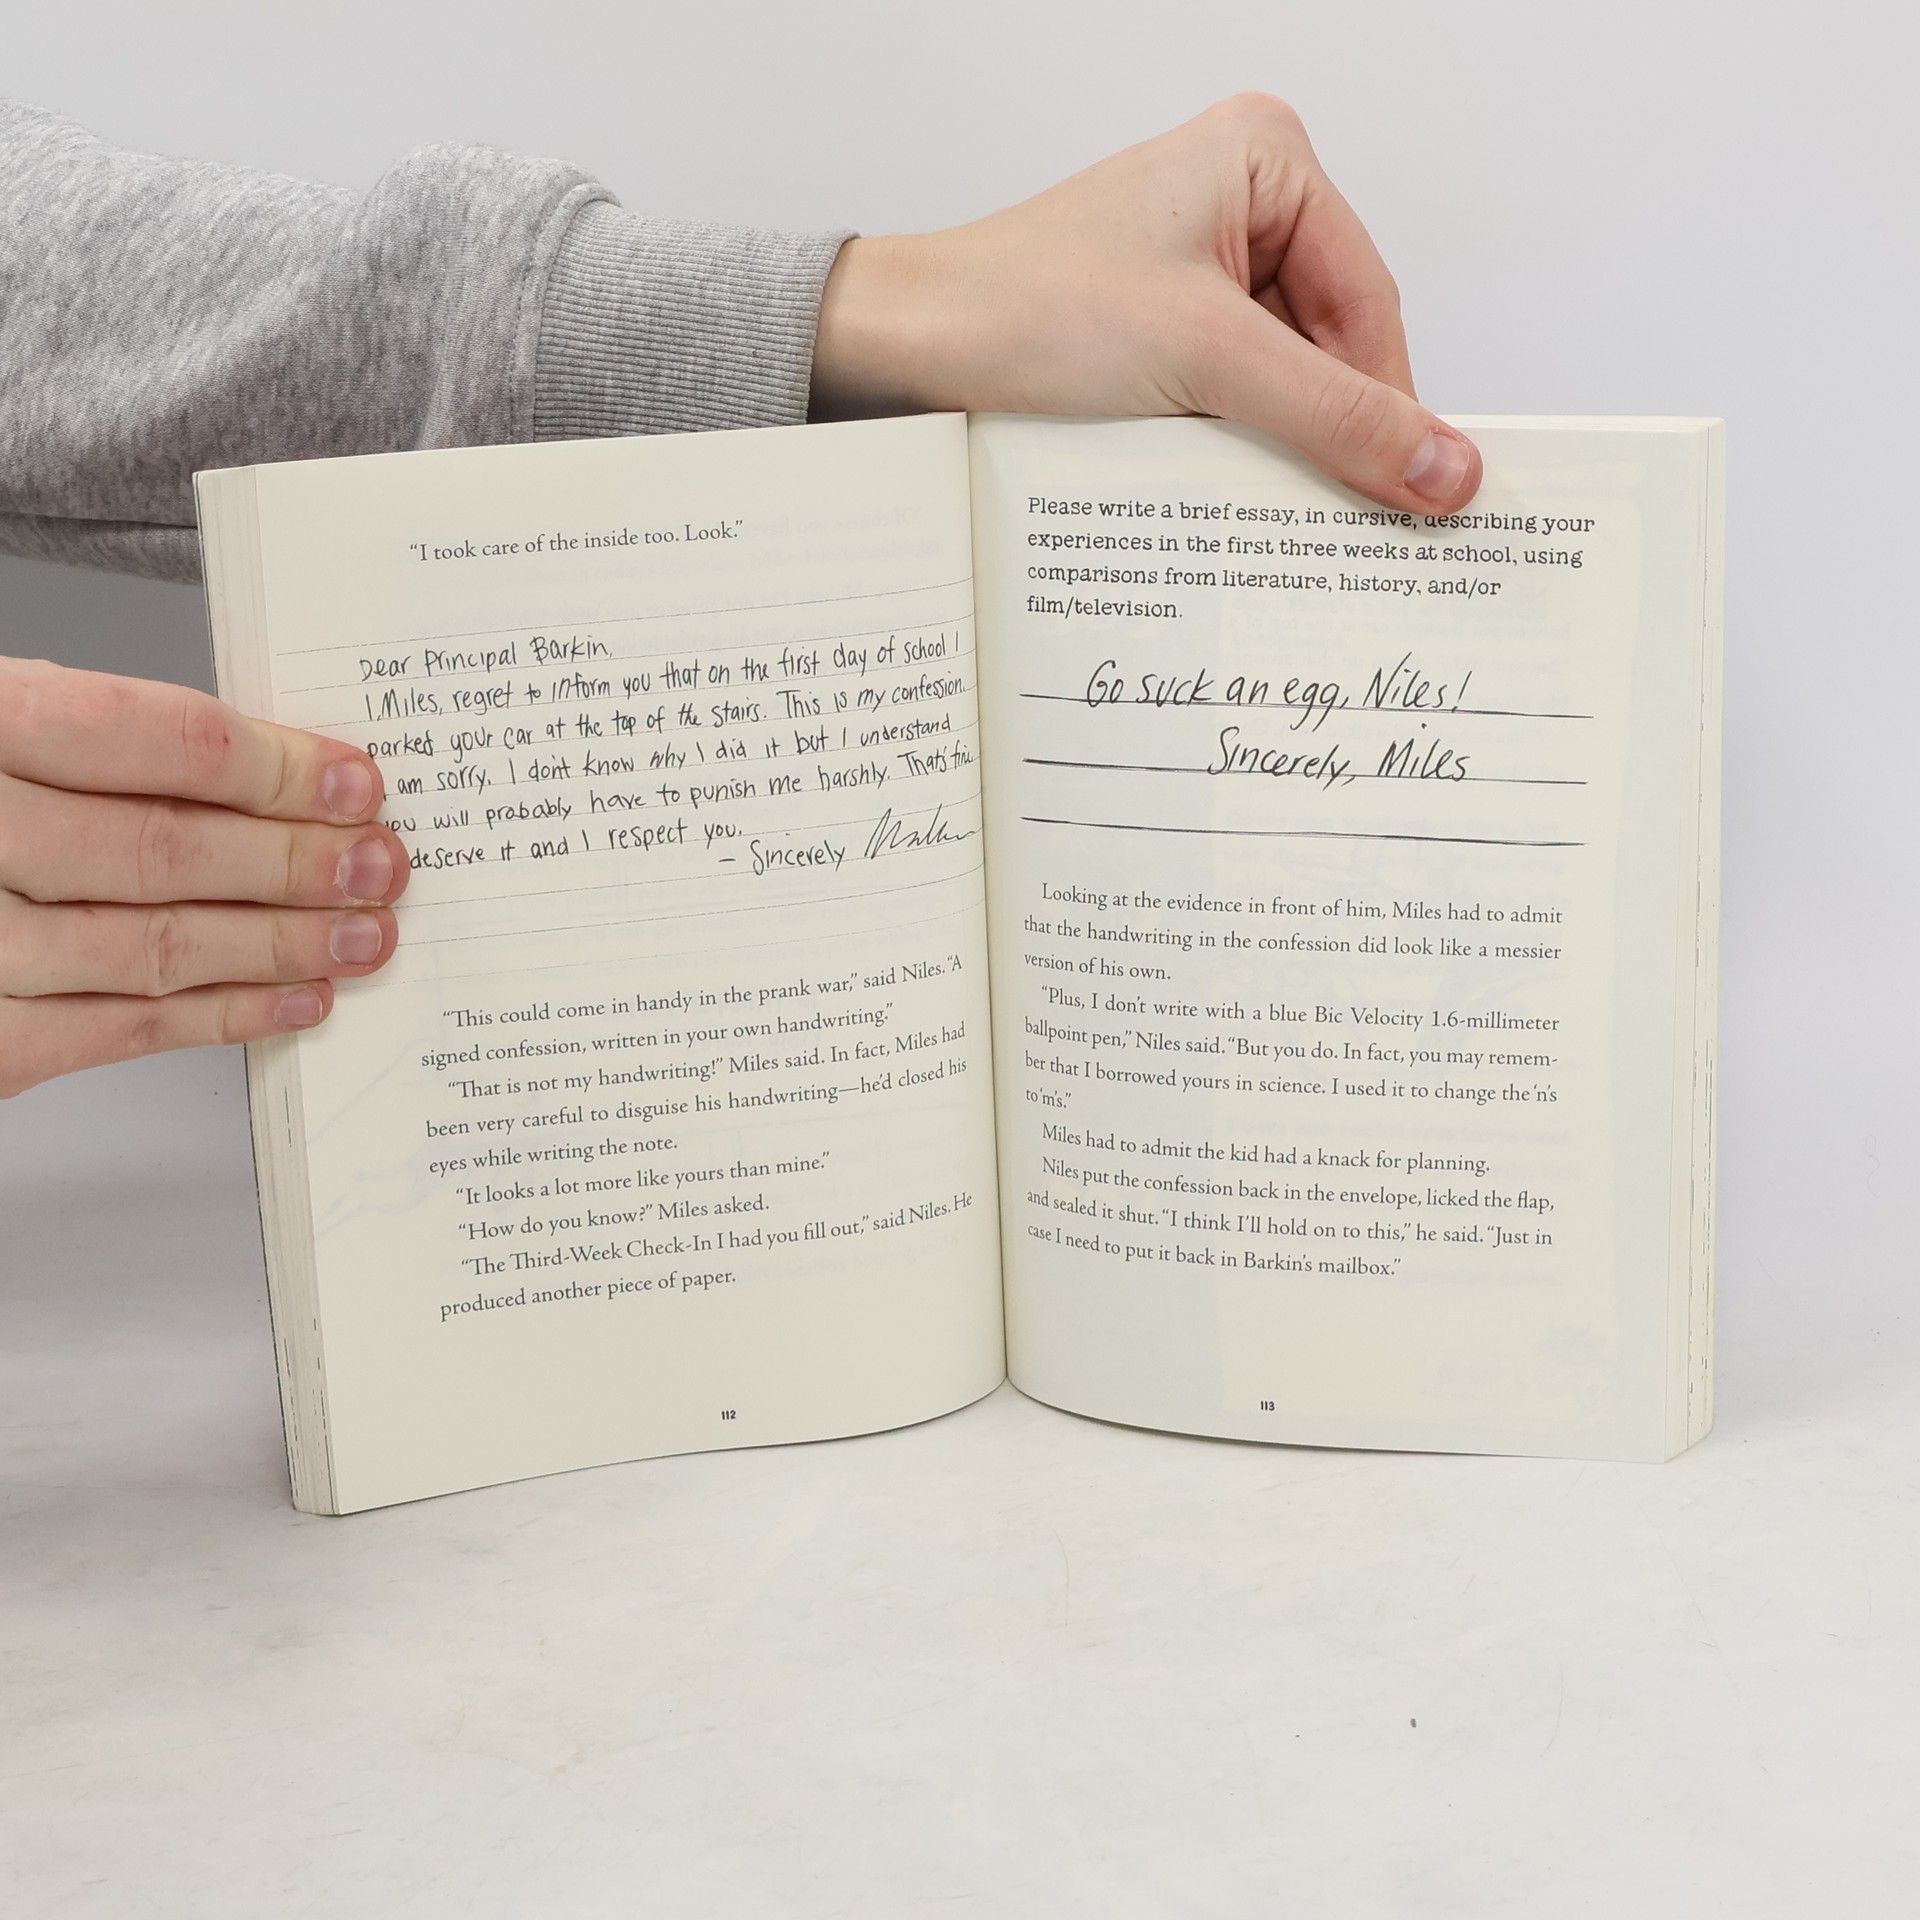 “I took care of the inside too. Look.”
Dear Principal Barkin,
I, Miles, regret to inform you that on the first day of school I
parked your car at the top of the stairs. This is my confession.
am sorry. I don't know why I did it but I understand
you will probably have to punish me harshly. That's fine
deserve it and I respect you.
– Sincerely
“This could come in handy in the prank war,” said Niles. “A
signed confession, written in your own handwriting.”
“That is not my handwriting!” Miles said. In fact, Miles had
been very careful to disguise his handwriting—he’d closed his
eyes while writing the note.
“It looks a lot more like yours than mine.”
“How do you know?” Miles asked.
“The Third-Week Check-In I had you fill out,” said Niles. He
produced another piece of paper.
112
Please write a brief essay, in cursive, describing your
experiences in the first three weeks at school, using
comparisons from literature, history, and/or
film/television.
Go suck an egg, Niles!
Sincerely, Miles
Looking at the evidence in front of him, Miles had to admit
that the handwriting in the confession did look like a messier
version of his own.
“Plus, I don’t write with a blue Bic Velocity 1.6-millimeter
ballpoint pen,” Niles said. “But you do. In fact, you may remem-
ber that I borrowed yours in science. I used it to change the ‘n’s
to ‘m’s.”
Miles had to admit the kid had a knack for planning.
Niles put the confession back in the envelope, licked the flap,
and sealed it shut. “I think I’ll hold on to this,” he said. “Just in
case I need to put it back in Barkin’s mailbox.”
113